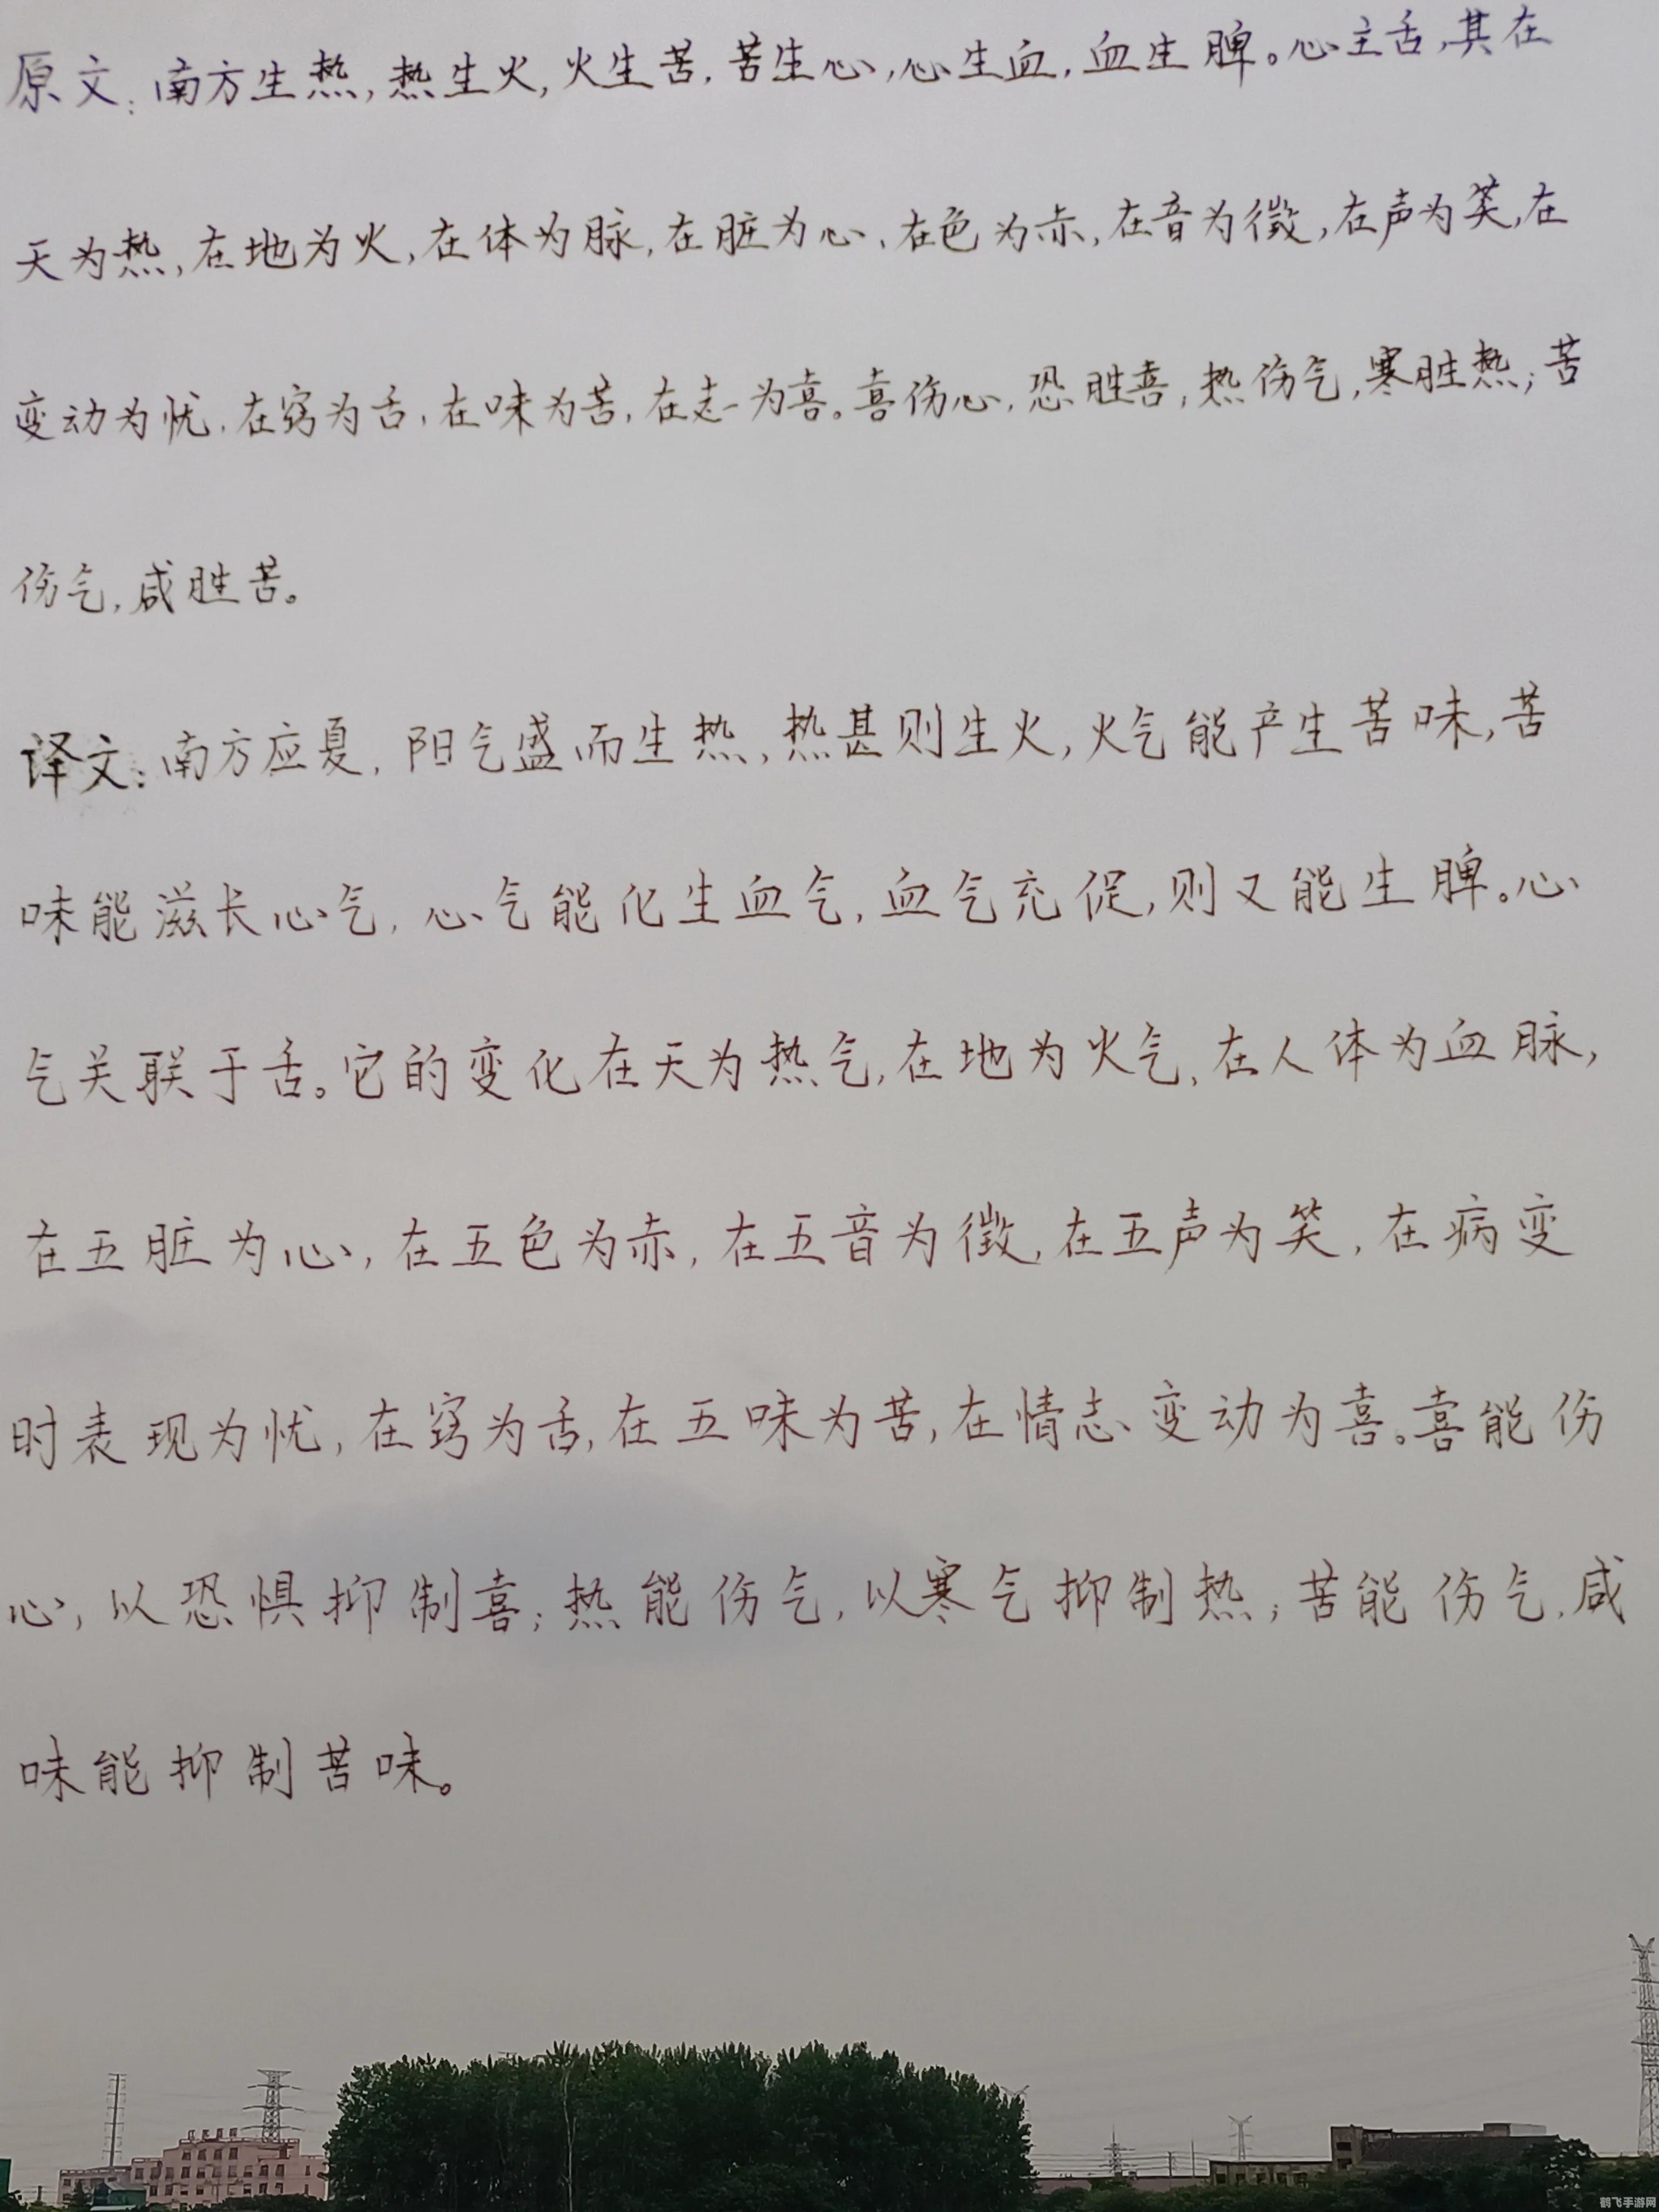 原文：南方生热，热生火，火生苦，苦生心，心生血，血生脾。心主舌，其在
天为热，在地为火，在体为脉，在脏为心，在色为赤，在音为徵，在声为笑，在
变动为忧，在窍为舌，在味为苦，在志为喜。喜伤心，恐胜喜，热伤气，寒胜热；苦
伤气，咸胜苦。
译文：南方应夏，阳气盛而生热，热甚则生火，火气能产生苦味，苦
味能滋长心气，心气能化生血气，血气充促，则又能生脾。心
气关联于舌。它的变化在天为热气，在地为火气，在人体为血脉，
在五脏为心，在五色为赤，在五音为徵，在五声为笑，在病变
时表现为忧，在窍为舌，在五味为苦，在情志变动为喜。喜能伤
心，以恐惧抑制喜；热能伤气，以寒气抑制热；苦能伤气，咸
味能抑制苦味。
鹤飞手游网